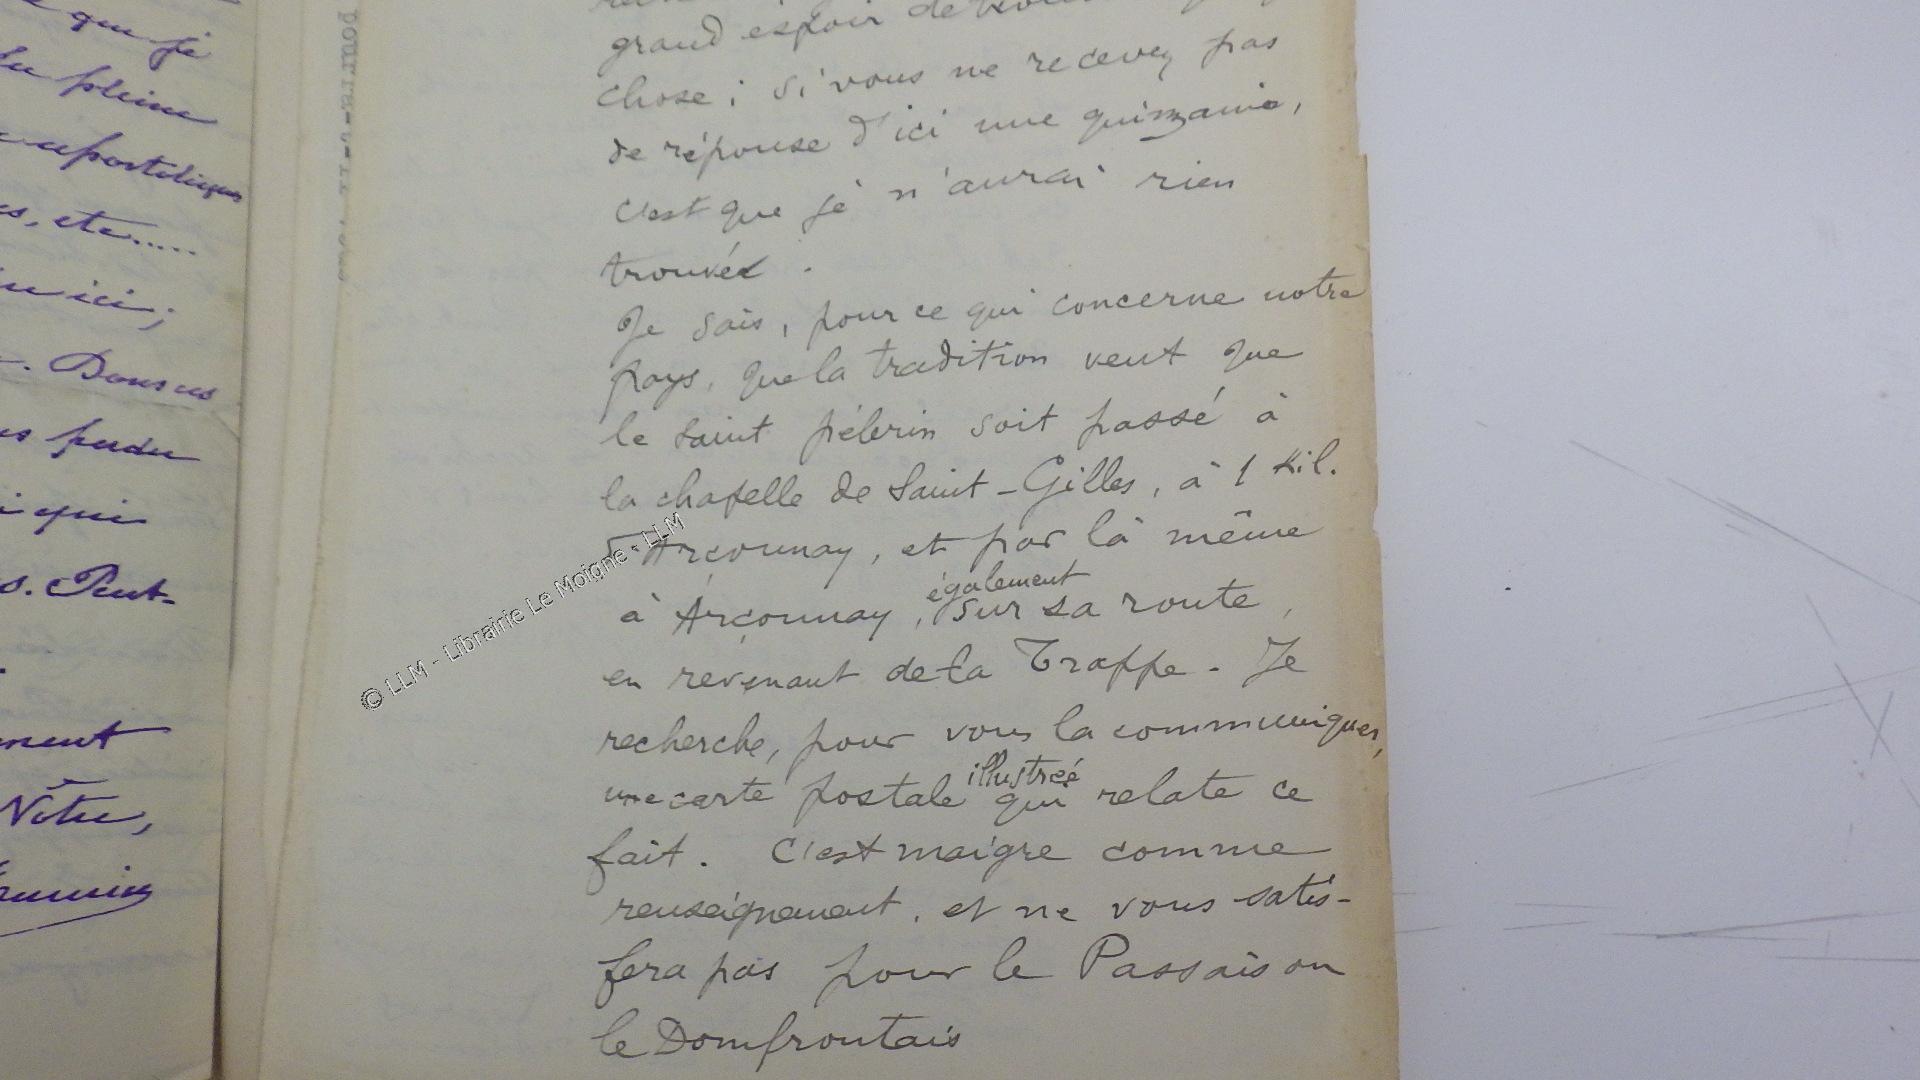 que je
pleine
apostoliques
es, etc.....
ici ;
Dans ces
perdu
qui
s. Peut-
ment
Nôtre,
grand espoir de
chose ; si vous ne recevez pas
de réponse d'ici une quinzaine,
c'est que je n'aurai rien
trouvé .
Je sais, pour ce qui concerne notre
pays, que la tradition veut que
le saint pélerin soit passé à
la chapelle de Saint-Gilles, à 1 Kil.
d'Arçonnay, et par là même
également
à Arçonnay, sur sa route,
en revenant de la Trappe. Je
recherche, pour vous la communiquer,
illustrée
une carte postale qui relate ce
fait. C'est maigre comme
renseignement, et ne vous satis-
fera pas pour le Passais ou
le Domfrontais
© LLM - Librairie Le Moigne - LLM